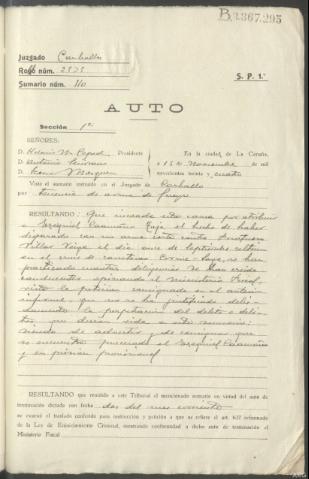 B.2.367.295
Juzgado Carballo
Rollo núm. 2373
Sumario núm. 110
S. P. 1.ª
AUTO
Sección 1ª
SEÑORES:
D. Presidente
D. Antonio
D.
En la ciudad de La Coruña,
a 15 de Noviembre de mil
novecientos treinta y cuatro
Visto el sumario instruido en el Juzgado de Carballo
por tenencia de arma de fuego
RESULTANDO: Que iniciada esta causa por atribuir
a Ezequiel Caamaño el hecho de haber
disparado con un arma corta contra
Villar el día once de Septiembre último
en el cruce de carreteras
practicado cuantas diligencias se han creido
conducentes opinando el ministerio Fiscal,
visto la petición consignada en el anterior
informe que no se ha justificado debi-
damente la perpetración del delito o deli-
tos que dieran vida a este sumario;
siendo de advertir y de consignar que
se encuentra procesado el Ezequiel Caamaño
y en prision provisional
RESULTANDO que remitido a este Tribunal el mencionado sumario en virtud del auto de
terminación dictado con fecha dos del mes corriente
se evacuó el traslado conferido para instrucción y petición a que se refiere el art. 627 reformado
de la Ley de Enjuiciamiento Criminal, mostrando conformidad a dicho auto de terminación el
Ministerio Fiscal